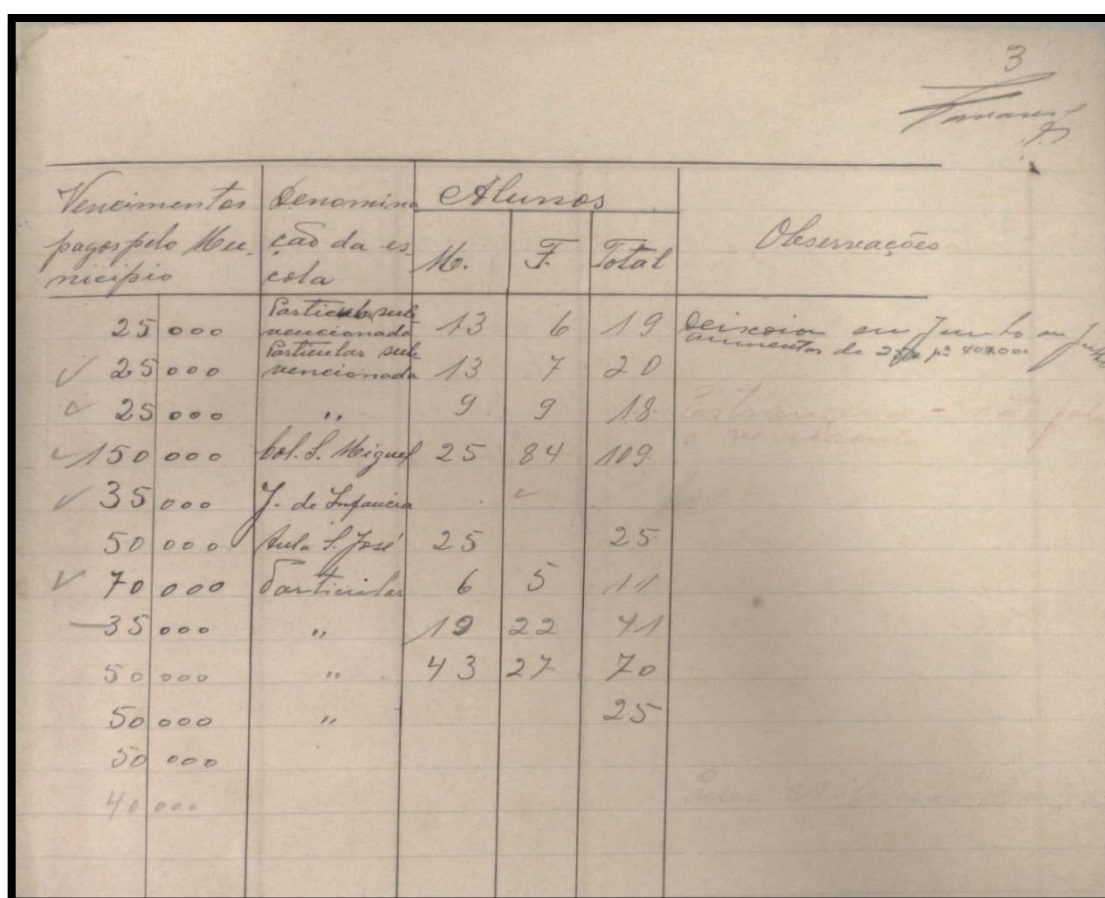 3
Vencimentos pagos pelo Mu-
nicipio
Denomina
ção da es
cola
Alunos
M. F. Total
Observações
25 000 Particular sub
vencionada 13 6 19 em Junho ou
aumentos de pª 40$000
25 000 Particular sub
vencionada 13 7 20
25 000 " 9 9 18 não
150 000 Col. S. Miguel 25 84 109
35 000 J. de Infancia
50 000 Aula S. José 25 25
70 000 Particular 6 5 11
35 000 " 19 22 41
50 000 " 43 27 70
50 000 " 25
50 000
40 000